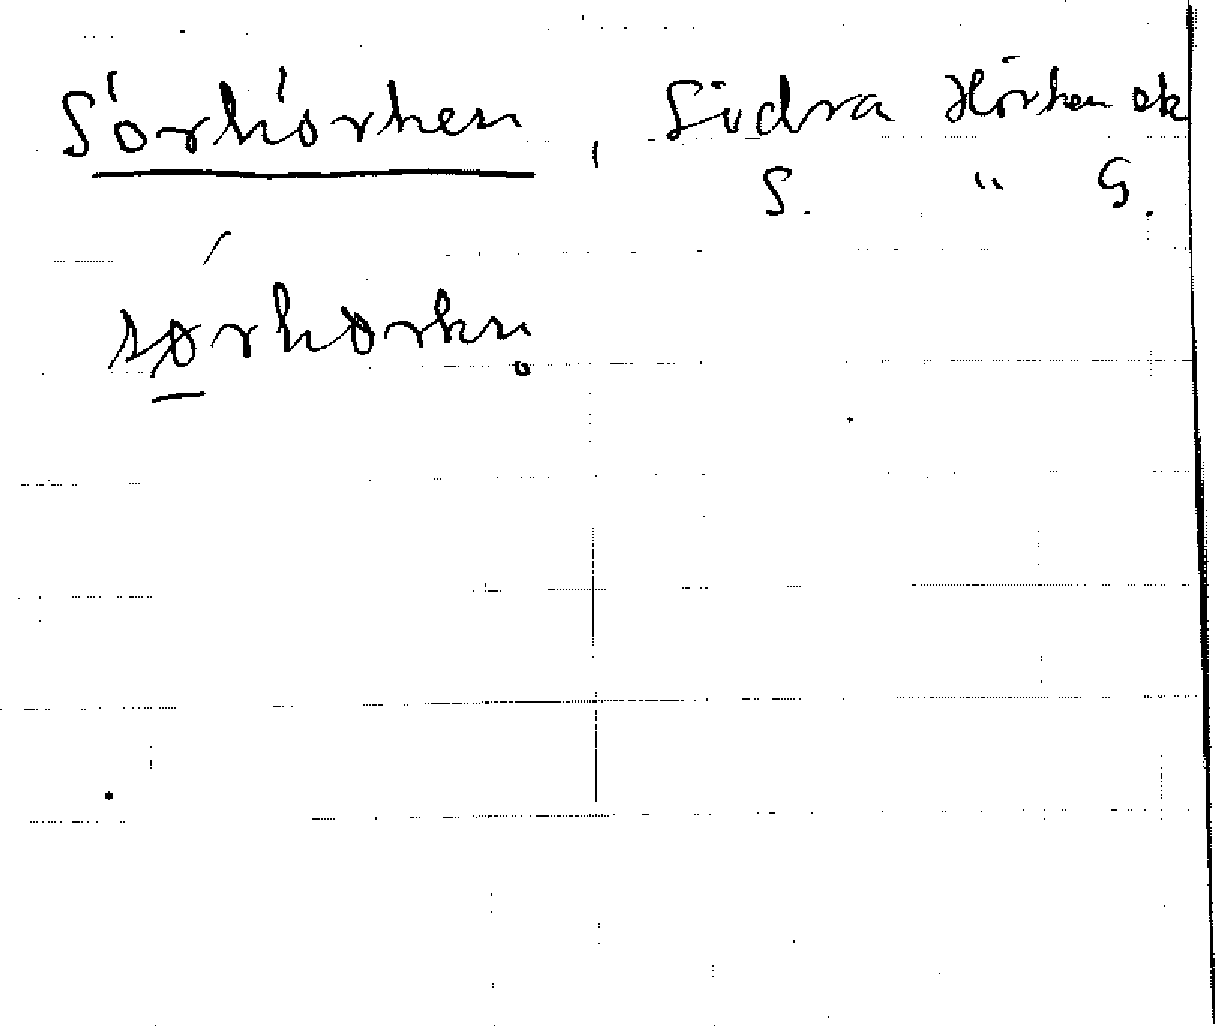 Sörhörken, Södra Hörken ok
S. " G.
sørhørkn.